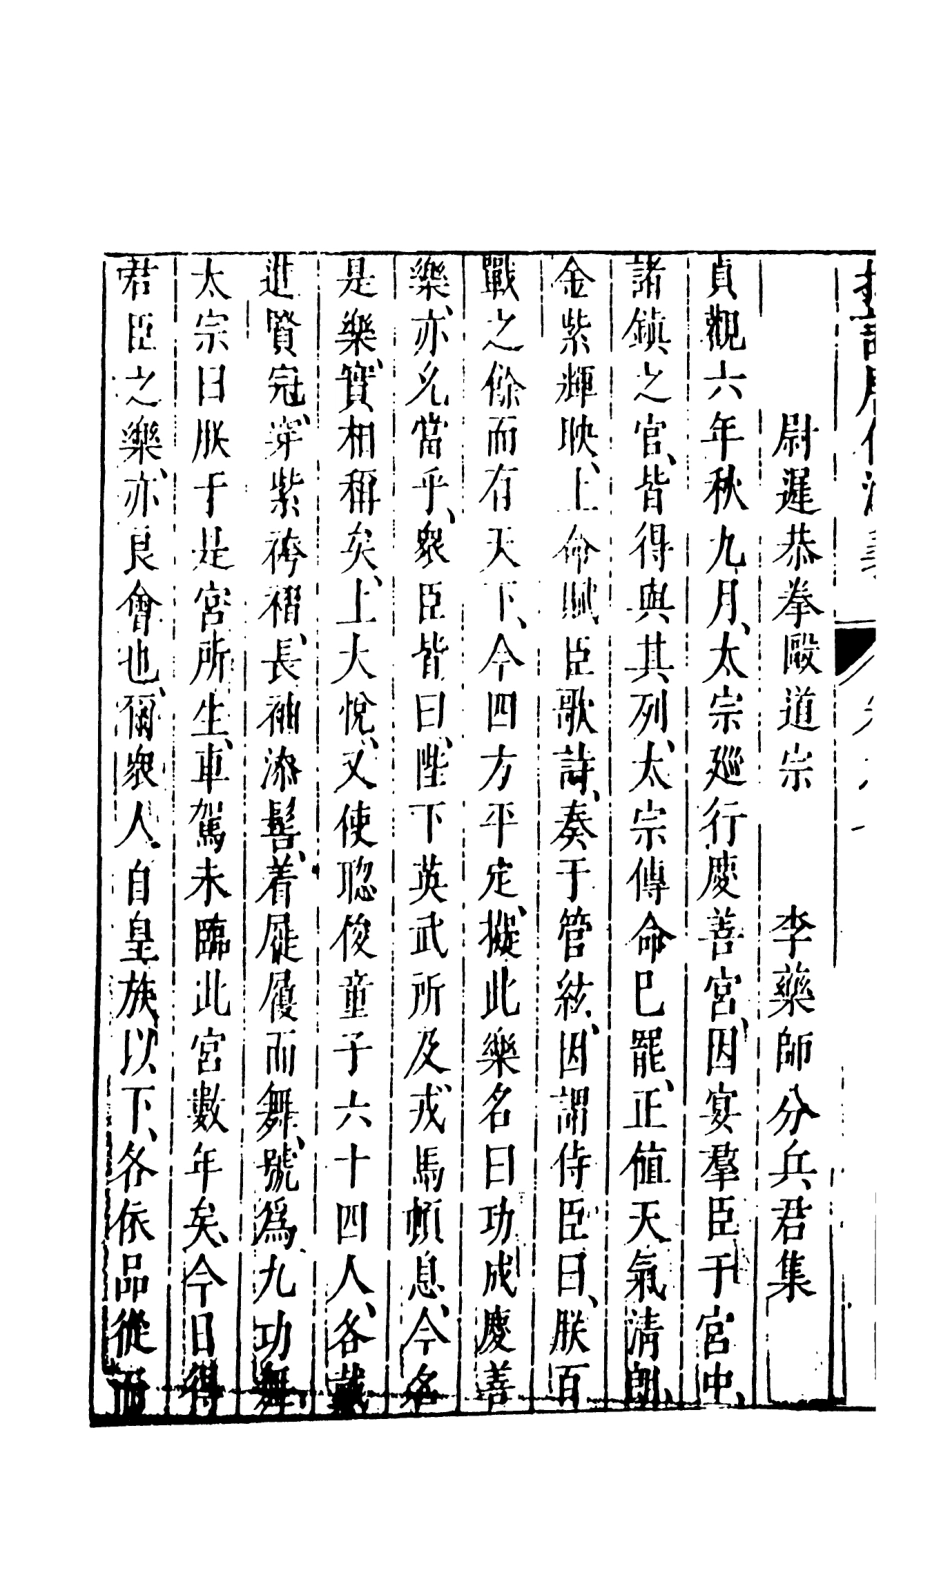 尉遲恭拳毆道宗　李藥師分兵君集
貞觀六年秋九月、太宗廵行慶善宮、因宴羣臣于宮中、
諸鎮之官、皆得與其列、太宗傳命已罷、正值天氣清朗、
金紫輝映、上命賦臣歌詩、奏于管絃、因謂侍臣曰、朕百
戰之餘而有天下、今四方平定、擬此樂名曰功成慶善
樂、亦允當乎、衆臣皆曰、陛下英武所及、戎馬頓息、今名
是樂、實相稱矣、上大悅、又使聰俊童子六十四人、各戴
進賢冠、穿紫袴褶、長袖添髻、着屣履而舞、號爲九功舞、
太宗曰朕于是宮所生、車駕未臨此宮數年矣、今日得
君臣之樂、亦良會也、爾衆人、自皇族以下、各依品從而